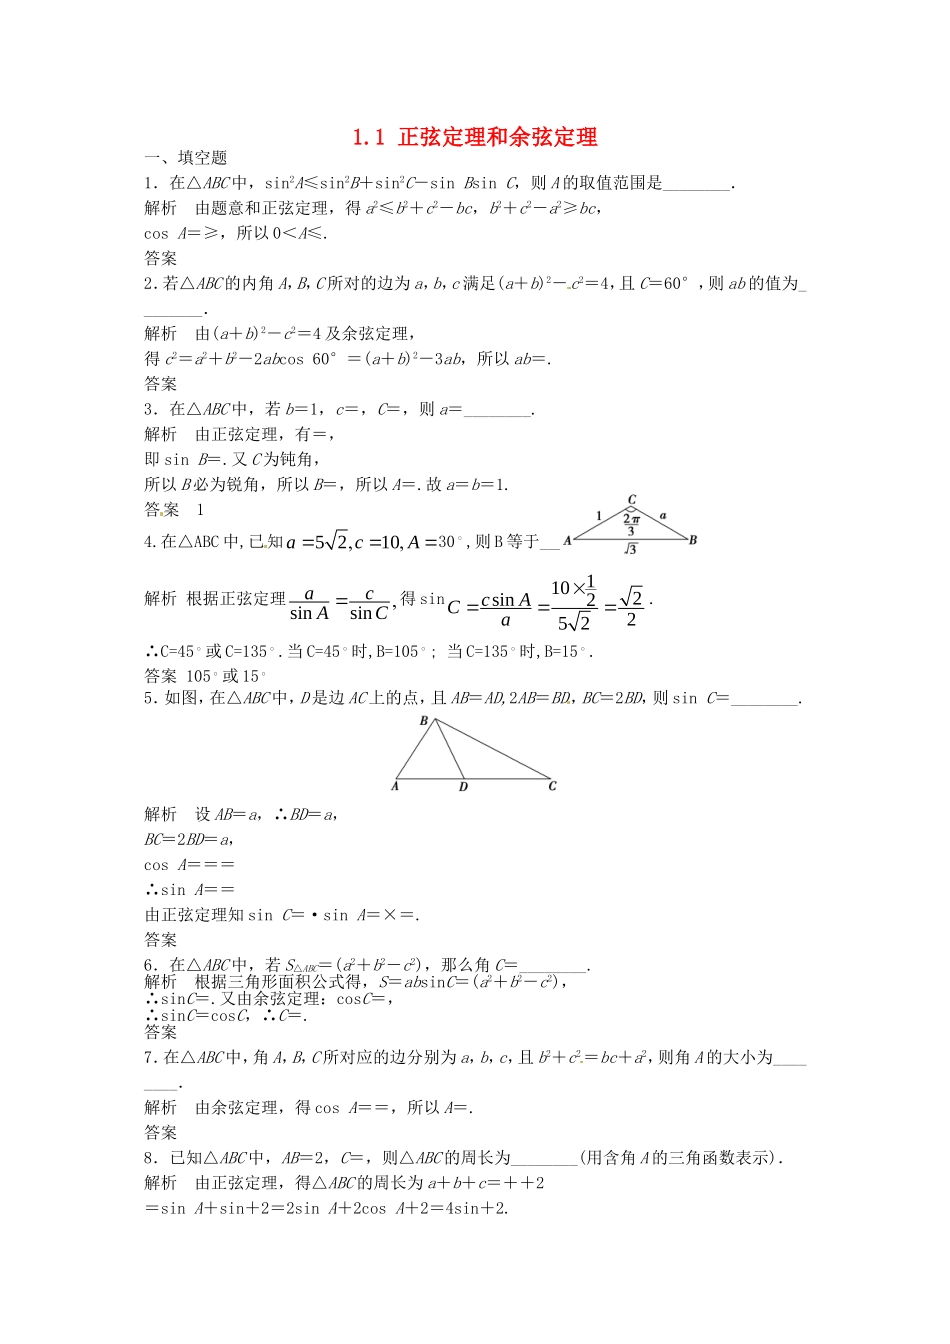 1.1 正弦定理和余弦定理
一、填空题
1．在△ABC中，sin²A≤sin²B＋sin²C－sin Bsin C，则 A的取值范围是________．
解析　由题意和正弦定理，得 a²≤b²＋c²－bc，b²＋c²－a²≥bc，
cos A＝≥，所以 0＜A≤.
答案
2．若△ABC的内角 A，B，C所对的边为 a，b，c满足(a＋b)²－c²＝4，且 C＝60°，则 ab的值为_
_______．
解析　由(a＋b)²－c²＝4及余弦定理，
得 c²＝a²＋b²－2abcos 60°＝(a＋b)²－3ab，所以 ab＝.
答案
3．在△ABC中，若 b＝1，c＝，C＝，则 a＝________.
解析　由正弦定理，有＝，
即 sin B＝.又 C为钝角，
所以 B必为锐角，所以 B＝，所以 A＝.故 a＝b＝1.
答案　1
C
1 2π/3 a
4.在△ABC 中,已知a=5√2,c=10,A=30°,则 B 等于__
A √3 B
解析 根据正弦定理 a/sin A = c/sin C, 得 sin C = csin A/a = (10×1/2)/(5√2) = √2/2 .
∴C=45°或 C=135°.当 C=45°时,B=105°; 当 C=135°时,B=15°.
答案 105°或 15°
5．如图，在△ABC中，D是边 AC上的点，且 AB＝AD,2AB＝BD，BC＝2BD，则 sin C＝________.
B
A D C
解析　设 AB＝a，∴BD＝a，
BC＝2BD＝a，
cos A＝＝＝
∴sin A＝＝
由正弦定理知 sin C＝·sin A＝×＝.
答案
6．在△ABC中，若 S△ABC＝(a²＋b²－c²)，那么角 C＝________.
解析　根据三角形面积公式得，S＝absinC＝(a²＋b²－c²)，
∴sinC＝.又由余弦定理：cosC＝，
∴sinC＝cosC，∴C＝.
答案
7．在△ABC中，角 A，B，C所对应的边分别为 a，b，c，且 b²＋c²＝bc＋a²，则角 A的大小为____
____．
解析　由余弦定理，得 cos A＝＝，所以 A＝.
答案
8．已知△ABC中，AB＝2，C＝，则△ABC的周长为________(用含角 A的三角函数表示)．
解析　由正弦定理，得△ABC的周长为 a＋b＋c＝＋＋2
＝sin A＋sin＋2＝2sin A＋2cos A＋2＝4sin＋2.